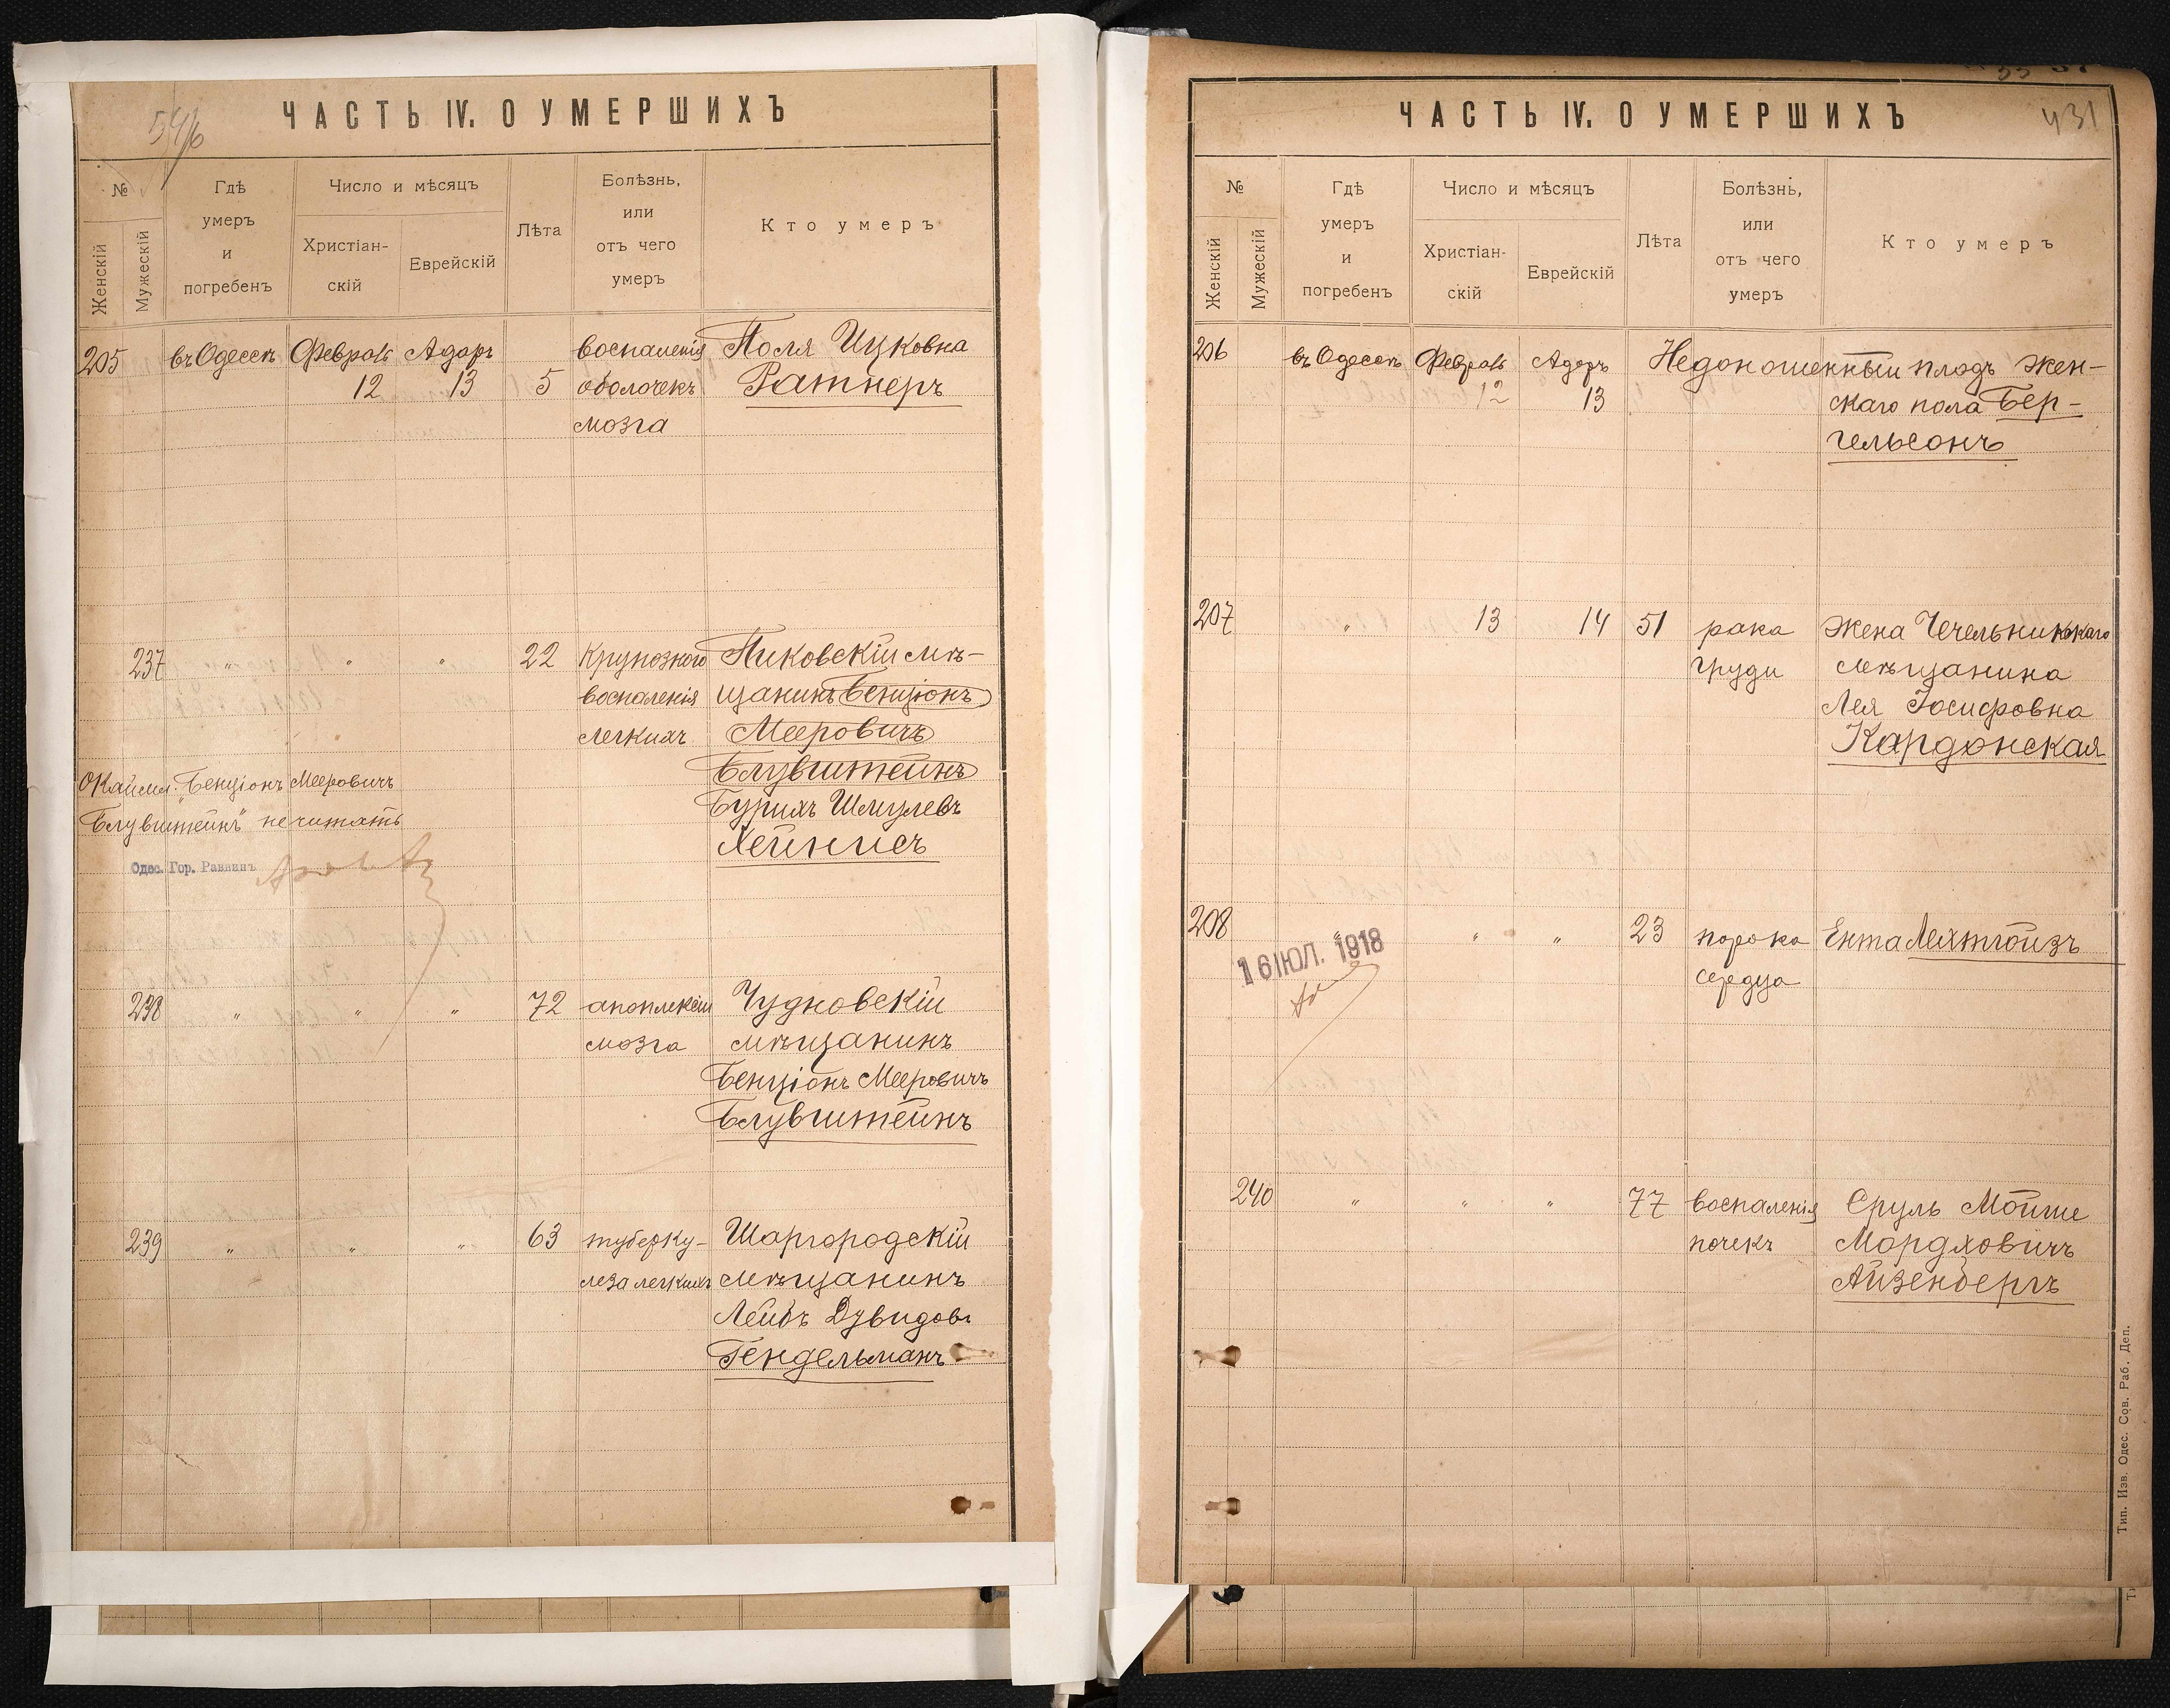 546
ЧАСТЬ IV. О УМЕРШИХЪ
№
Женскій
Мужескій
Гдѣ
умеръ
и
погребенъ
Число и мѣсяцъ
Христіан-
скій
Еврейскій
Лѣта
Болѣзнь,
или
отъ чего
умеръ
Кто умеръ
205 въ Одессѣ Февраль Адаръ воспаленія Поля Ицковна
12 13 5 оболочекъ Ратнеръ
мозга
237 " " " 22 Крупознаго Пиковскій мѣ-
воспаленія щанинъ Бенціонъ
легкихъ Мееровичъ
Блувштейнъ
Бурихъ Шмулевъ
Хейнисъ
Окаймл. "Бенціонъ Мееровичъ
Блувштейнъ" не читать
Одес. Гор. Раввинъ
238 " " " 72 апоплексіи Чудновскій
мозга мѣщанинъ
Бенціонъ Мееровичъ
Блувштейнъ
239 " " " 63 туберку- Шаргородскій
леза легкихъ мѣщанинъ
Лейбъ Дувидовъ
Гендельманъ
431
ЧАСТЬ IV. О УМЕРШИХЪ
№
Женскій
Мужескій
Гдѣ
умеръ
и
погребенъ
Число и мѣсяцъ
Христіан-
скій
Еврейскій
Лѣта
Болѣзнь,
или
отъ чего
умеръ
Кто умеръ
206 въ Одессѣ Февраль Адаръ Недоношенный плодъ жен-
12 13 скаго пола Бер-
гельсонъ
207 " 13 14 51 рака Жена Чечельницкаго
груди мѣщанина
Лея Іосифовна
Кардонская
208 " " " 23 порока Ента Лехтгойзъ
сердца
16 ІЮЛ. 1918
240 " " " 77 воспаленія Сруль Мойше
почекъ Мордховичъ
Айзенбергъ
Тип. Изв. Одес. Сов. Раб. Деп.